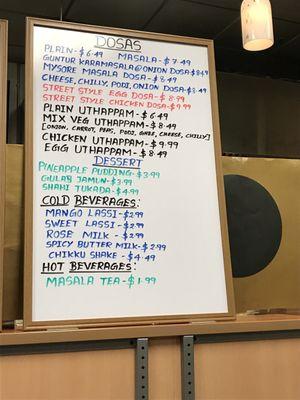 DOSAS
PLAIN-$6.49 MASALA-$7.49
GUNTUR KARAMASALA@ONION DOSA-$8.49
MYSORE MASALA DOSA-$8.49
CHEESE, CHILLY, PODI, ONION DOSA-$8.49
STREET STYLE EGG DOSA-$8.99
STREET STYLE CHICKEN DOSA-$9.99
PLAIN UTHAPPAM-$6.49
MIX VEG UTHAPPAM-$8.49
[ONION, CARROT, PEAS, PODI, GHEE, CHEESE, CHILLY]
CHICKEN UTHAPPAM-$9.99
EGG UTHAPPAM-$8.49
DESSERT
PINEAPPLE PUDDING-$3.99
GULAB JAMUN-$3.99
SHAHI TUKADA-$4.99
COLD BEVERAGES:
MANGO LASSI-$2.99
SWEET LASSI-$2.99
ROSE MILK-$2.99
SPICY BUTTER MILK-$2.99
CHIKKU SHAKE-$4.49
HOT BEVERAGES:
MASALA TEA-$1.99